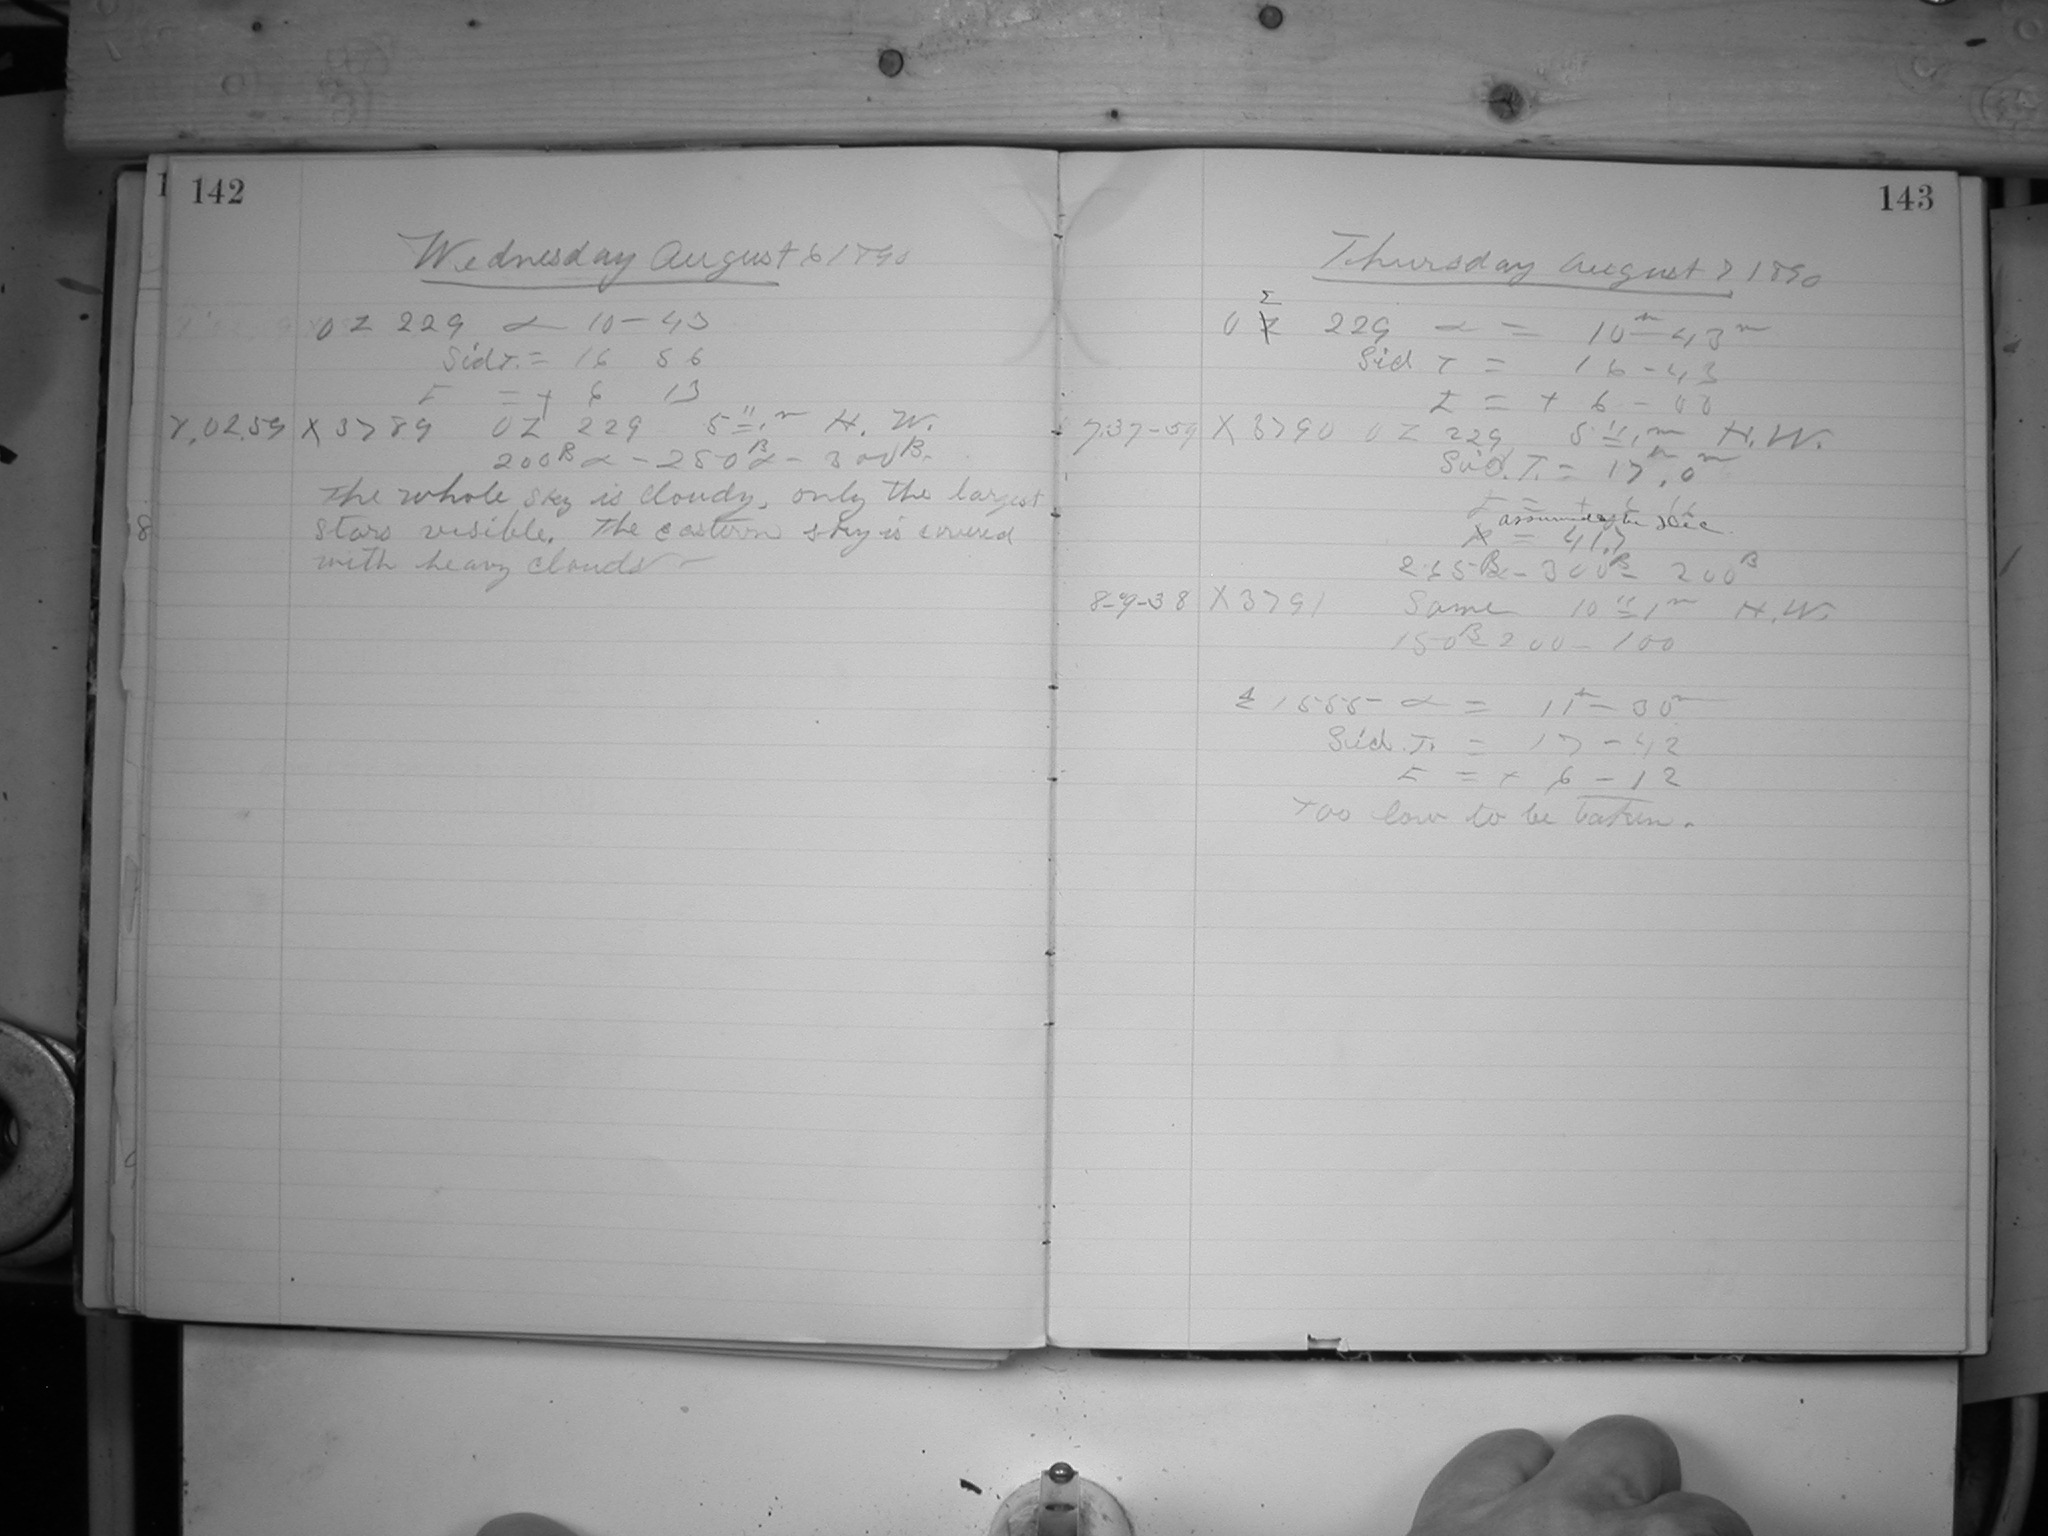 142
Wednesday August 6 1890
OΣ 229 α 10-43
Sid T. = 16 56
t = + 6 13
7,02,59 X 3789 OΣ 229 5" 1m H. W.
200B α - 250B α - 300B.
The whole sky is cloudy, only the largest
stars visible. The eastern sky is covered
with heavy clouds
143
Thursday August 7 1890
Σ
O Σ 229 α = 10h-43m
Sid T = 16-43
t = + 6-00
7.37-59 X 3790 OΣ 229 5" 1m H.W.
Sid. T. = 17h, 0m
assumed to be Dec.
X = 41.7
300B - 200B
8-9-38 X 3791 Same 10" 1m H.W.
150B 200 - 100
Σ 1555 α = 11h-30m
Sid. T. = 17-42
t = + 6-12
Too low to be taken.